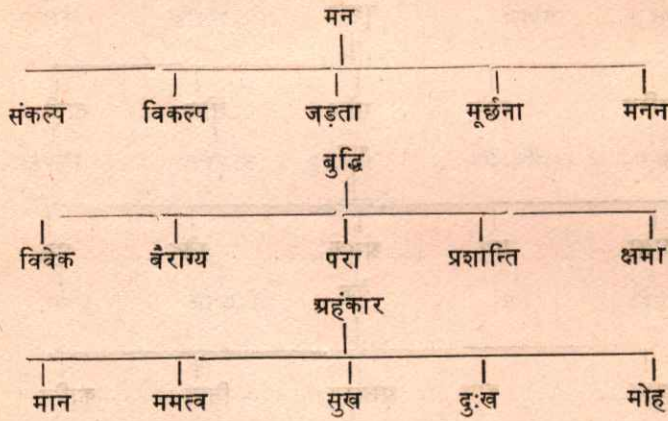 मन
संकल्प विकल्प जड़ता मूर्छना मनन
बुद्धि
विवेक बैराग्य परा प्रशान्ति क्षमा
अहंकार
मान ममत्व सुख दुःख मोह